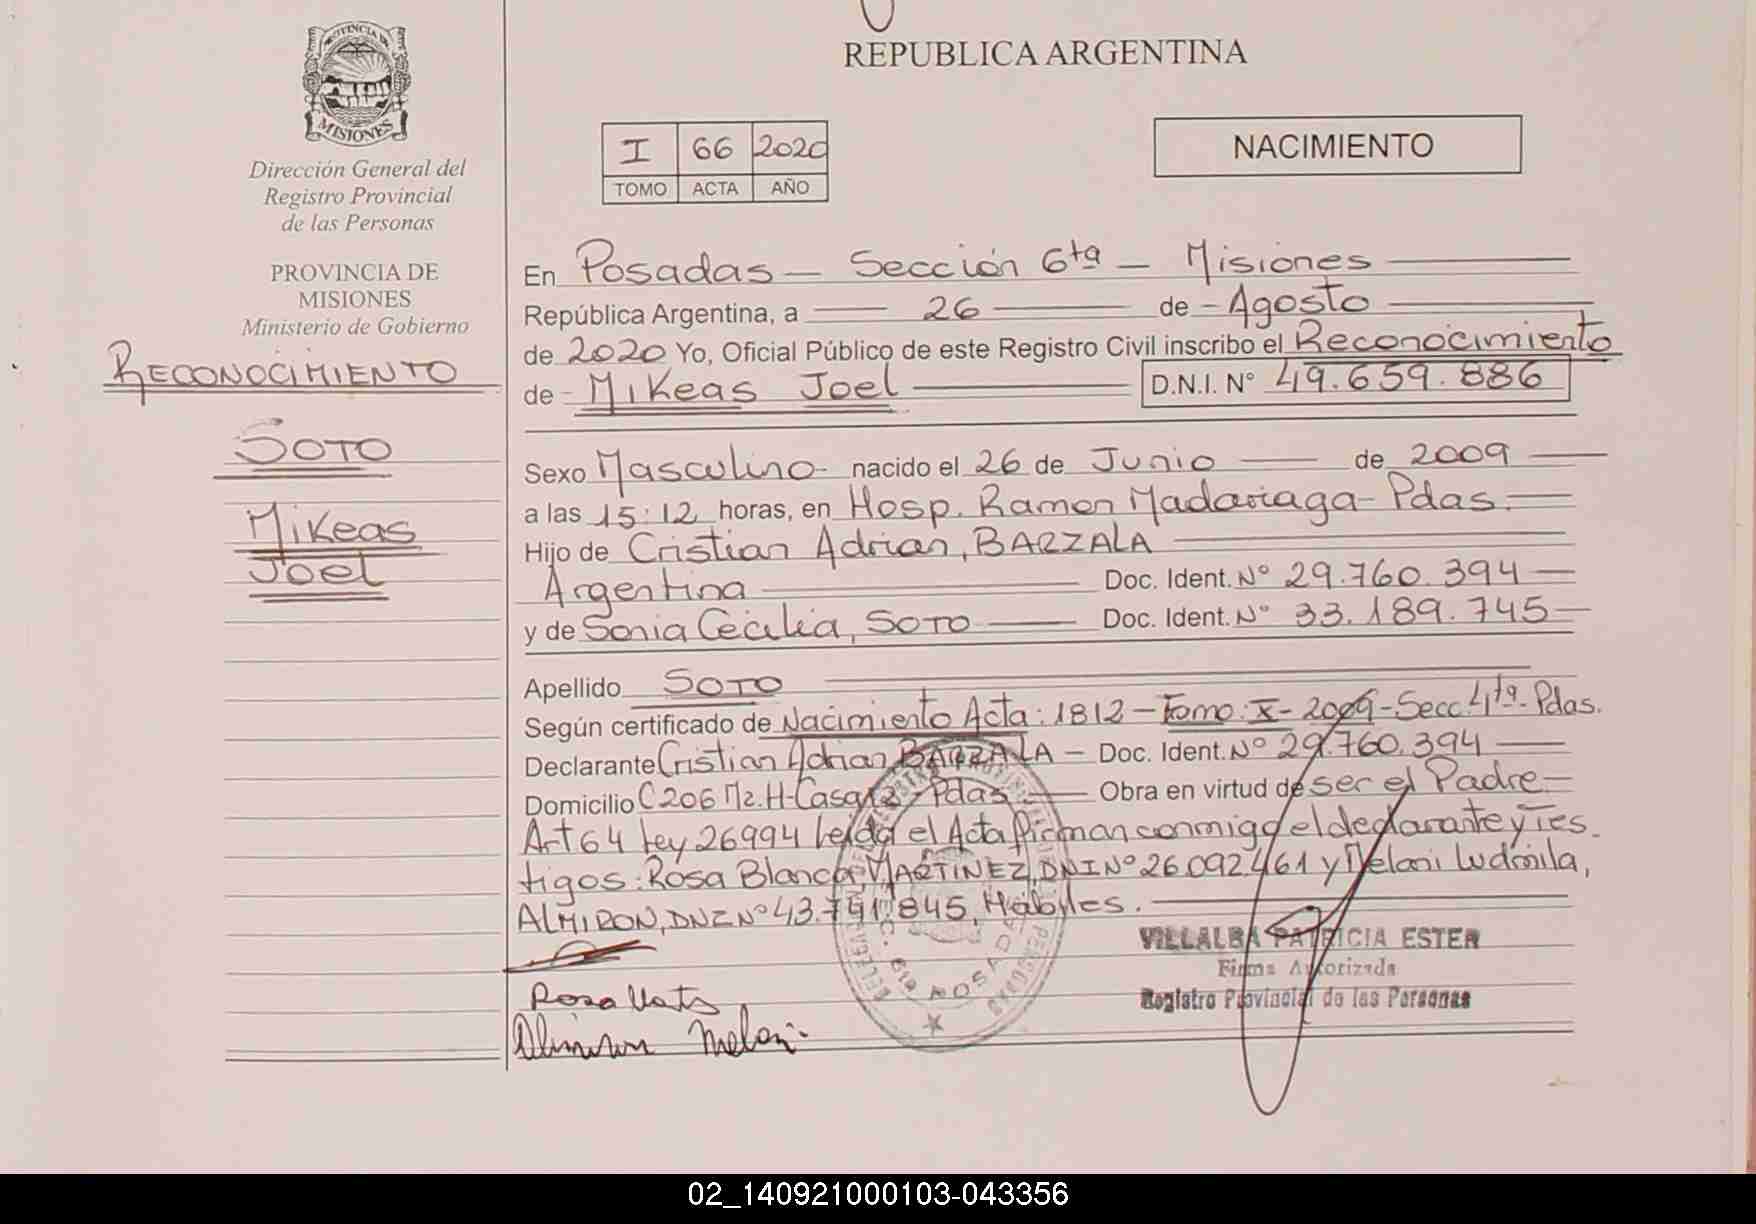 PROVINCIA DE
MISIONES
Dirección General del
Registro Provincial
de las Personas
PROVINCIA DE
MISIONES
Ministerio de Gobierno
RECONOCIMIENTO
SOTO
Mikeas
Joel
REPUBLICA ARGENTINA
I 66 2020
TOMO ACTA AÑO
NACIMIENTO
En Posadas - Sección 6ta - Misiones
República Argentina, a 26 de - Agosto
de 2020 Yo, Oficial Público de este Registro Civil inscribo el Reconocimiento
de - Mikeas Joel D.N.I. N° 49.659.886
Sexo Masculino - nacido el 26 de Junio de 2009
a las 15:12 horas, en Hosp. Ramon Madariaga - Pdas.
Hijo de Cristian Adrian, BARZALA
Argentina Doc. Ident. N° 29.760.394
y de Sonia Cecilia, SOTO Doc. Ident. N° 33.189.745
Apellido SOTO
Según certificado de Nacimiento Acta: 1812 - Tomo: X - 2009 - Secc. 4ta - Pdas.
Declarante Cristian Adrian BARZALA - Doc. Ident. N° 29.760.394
Domicilio C206 Mz. H - Casa - Pdas Obra en virtud de ser el Padre -
Art 64 Ley 26994 Leida el Acta firman conmigo el declarante y Tes-
tigos: Rosa Blanca MARTINEZ, DNI N° 26.092.461 y Melani Ludmila,
ALMIRON, DNI N° 43.791.845, Hábiles.
VILLALBA PATRICIA ESTER
Firma Autorizada
Registro Provincial de las Personas
POSADAS
Rosa
Almiron Melani
02_140921000103-043356